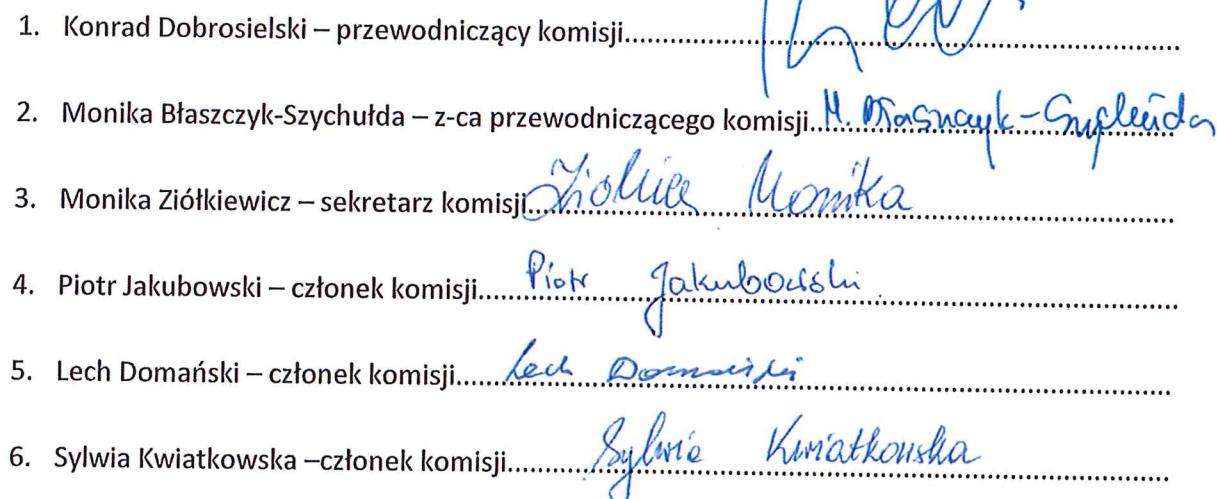 1. Konrad Dobrosielski – przewodniczący komisji....................
2. Monika Błaszczyk-Szychułda – z-ca przewodniczącego komisji....................
3. Monika Ziółkiewicz – sekretarz komisji.................... Monika
4. Piotr Jakubowski – członek komisji.................... Piotr Jakubowski
5. Lech Domański – członek komisji.................... Lech Domański
6. Sylwia Kwiatkowska –członek komisji.................... Sylwia Kwiatkowska